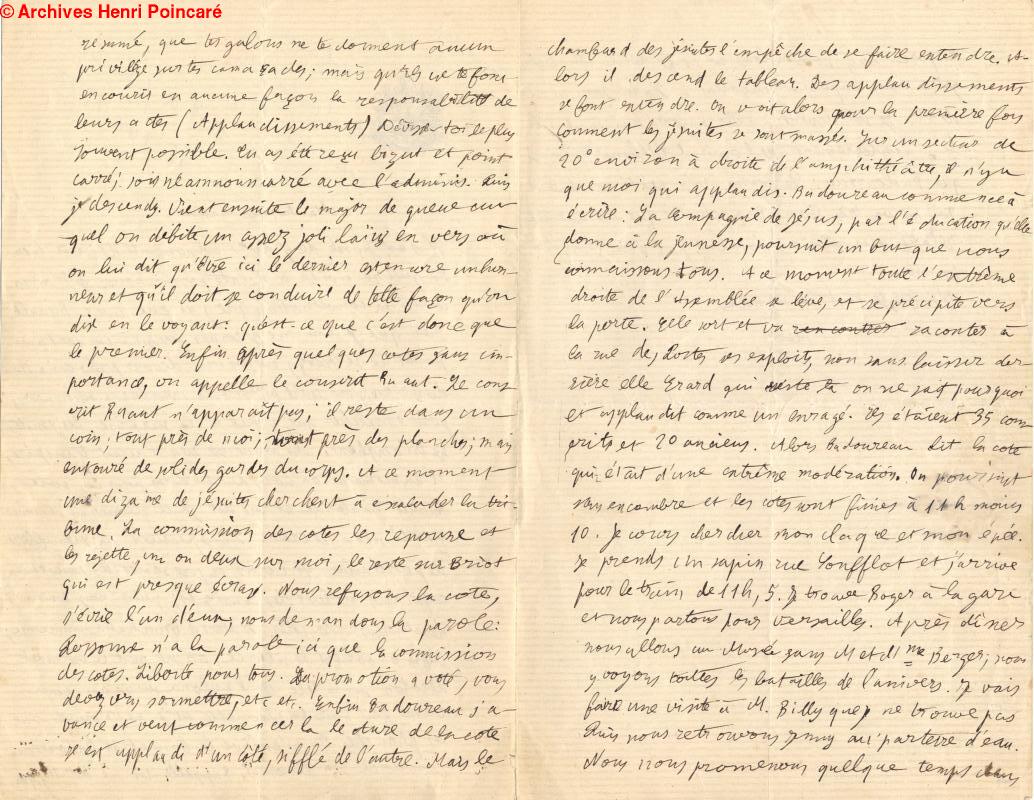 © Archives Henri Poincaré
résumé, que tes galons ne te donnent aucun
privilège sur tes camarades; mais qu'ils ne te font
encourir en aucune façon la responsabilité de
leurs actes (Applaudissements) toi le plus
souvent possible. Tu as été reçu bizut et point
carré; sois néanmoins carré avec l'adminis. Puis
je descends. Vient ensuite le major de queue au
quel on débite un assez joli laïus en vers où
on lui dit qu'être ici le dernier est encore un hon-
neur et qu'il doit se conduire de telle façon qu'on
dise en le voyant: qu'est-ce que c'est donc que
le premier. Enfin après quelques cotes sans im-
portance, on appelle le conscrit Ruaut. Le cons
crit Ruaut n'apparait pas; il reste dans un
coin; tout près de moi; près des planches; mais
entouré de solides gardes du corps. A ce moment
une dizaine de jésuites cherchent à escalader la tri-
bune. La commission des cotes les repousse et
les rejette, un ou deux sur moi, le reste sur Briot
qui est presque écrasé. Nous refusons la cote,
s'écrie l'un d'eux, nous demandons la parole:
Personne n'a la parole ici que la commission
des cotes. Liberté pour tous. La promotion a voté, vous
devez vous soumettre, etc etc. Enfin Badoureau s'a-
vance et veut commencer la lecture de la cote
Il est applaudi d'un côté, sifflé de l'autre. Mais le
chambard des jésuites l'empêche de se faire entendre. A-
lors il descend le tableau. Des applaudissements
se font entendre. On voit alors pour la première fois
comment les jésuites se sont massés. Sur un secteur de
20° environ à droite de l'amphithéâtre, il n'y a
que moi qui applaudis. Badoureau commence à
écrire: La Compagnie de Jésus, par l'éducation qu'elle
donne à la jeunesse, poursuit un but que nous
connaissons tous. A ce moment toute l'extrême
droite de l'Assemblée se lève, et se précipite vers
la porte. Elle sort et va raconter à
la rue des Postes ses exploits, non sans laisser der-
rière elle Erard qui on ne sait pourquoi
et applaudit comme un enragé. Ils étaient 35 con
scrits et 20 anciens. Alors Badoureau lit la cote
qui était d'une extrême modération. On poursuit
sans encombre et les cotes sont finies à 11h moins
10. Je cours chercher mon claque et mon épée.
Je prends un sapin rue Soufflot et j'arrive
pour le train de 11h,5. Je trouve Roger à la gare
et nous partons pour Versailles. Après dîner
nous allons au Musée sans M et Mme Berger; nous
y voyons toutes les batailles de l'univers. Je vais
faire une visite à M. Billy que je ne trouve pas
Puis nous retrouvons au parterre d'eau.
Nous nous promenons quelque temps dans